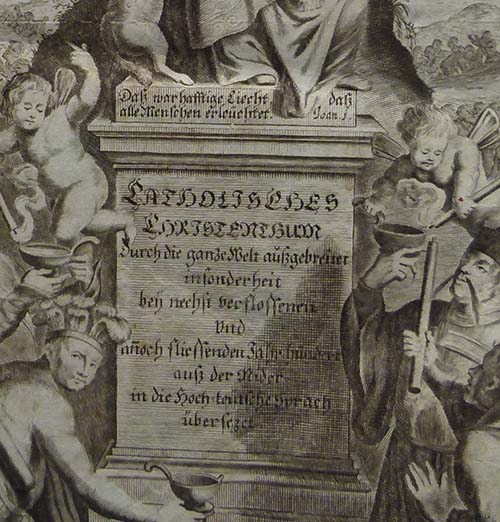 Daß warhafftige Liecht, daß
alle Menschen erleuchtet. Joan j.
CATHOLISCHES
CHRISTENTHUM
Durch die gantze Welt außgebreitet
insonderheit
bey nechst verflossenen
Vnd
annoch fliessenden Jahrhundert
auß der Nider
in die Hoch-teutsche Sprach
übersezet